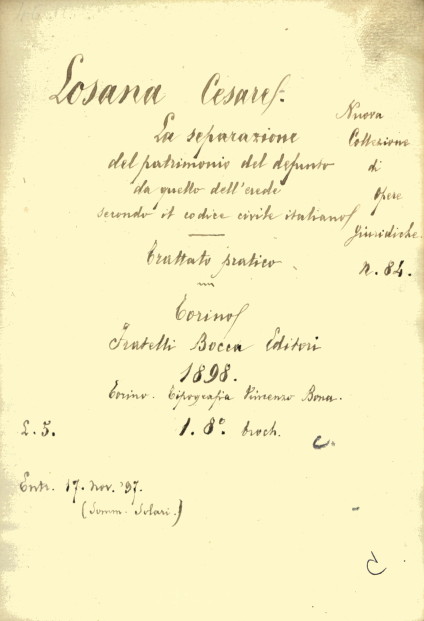 Losana Cesare.
La separazione
del patrimonio del defunto
da quello dell'erede
secondo il codice civile italiano
Trattato pratico
Nuova
Collezione
di
Opere
Giuridiche.
n. 84.
Torino
Fratelli Bocca Editori
1898.
Torino. Tipografia Vincenzo Bona.
L. 5.
1. 8º. broch.
Entr. 17. Nov. '97.
(Somm. Solari.)